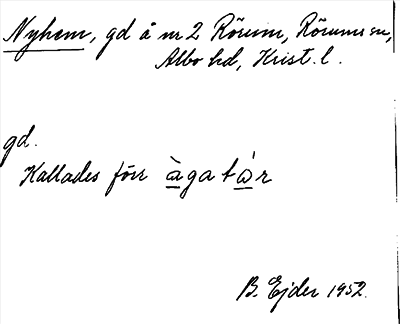 Nyhem, gd å nr 2 Rörum, Rörums sn,
Albo hd, Krist. l.
gd.
Kallades förr
B. Ejder 1952.